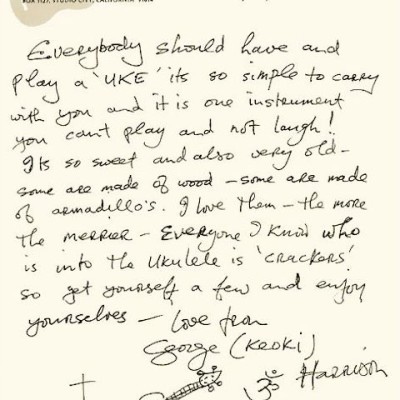 BOX 1137, STUDIO CITY, CALIFORNIA 91614
Everybody should have and
play a 'UKE' its so simple to carry
with you and it is one instrument
you cant play and not laugh!
Its so sweet and also very old-
some are made of wood - some are made
of armadillo's. I love them - the more
the merrier - Everyone I know who
is into the ukulele is 'crackers'
so get yourself a few and enjoy
yourselves - Love from
George (Keoki)
ॐ Harrison